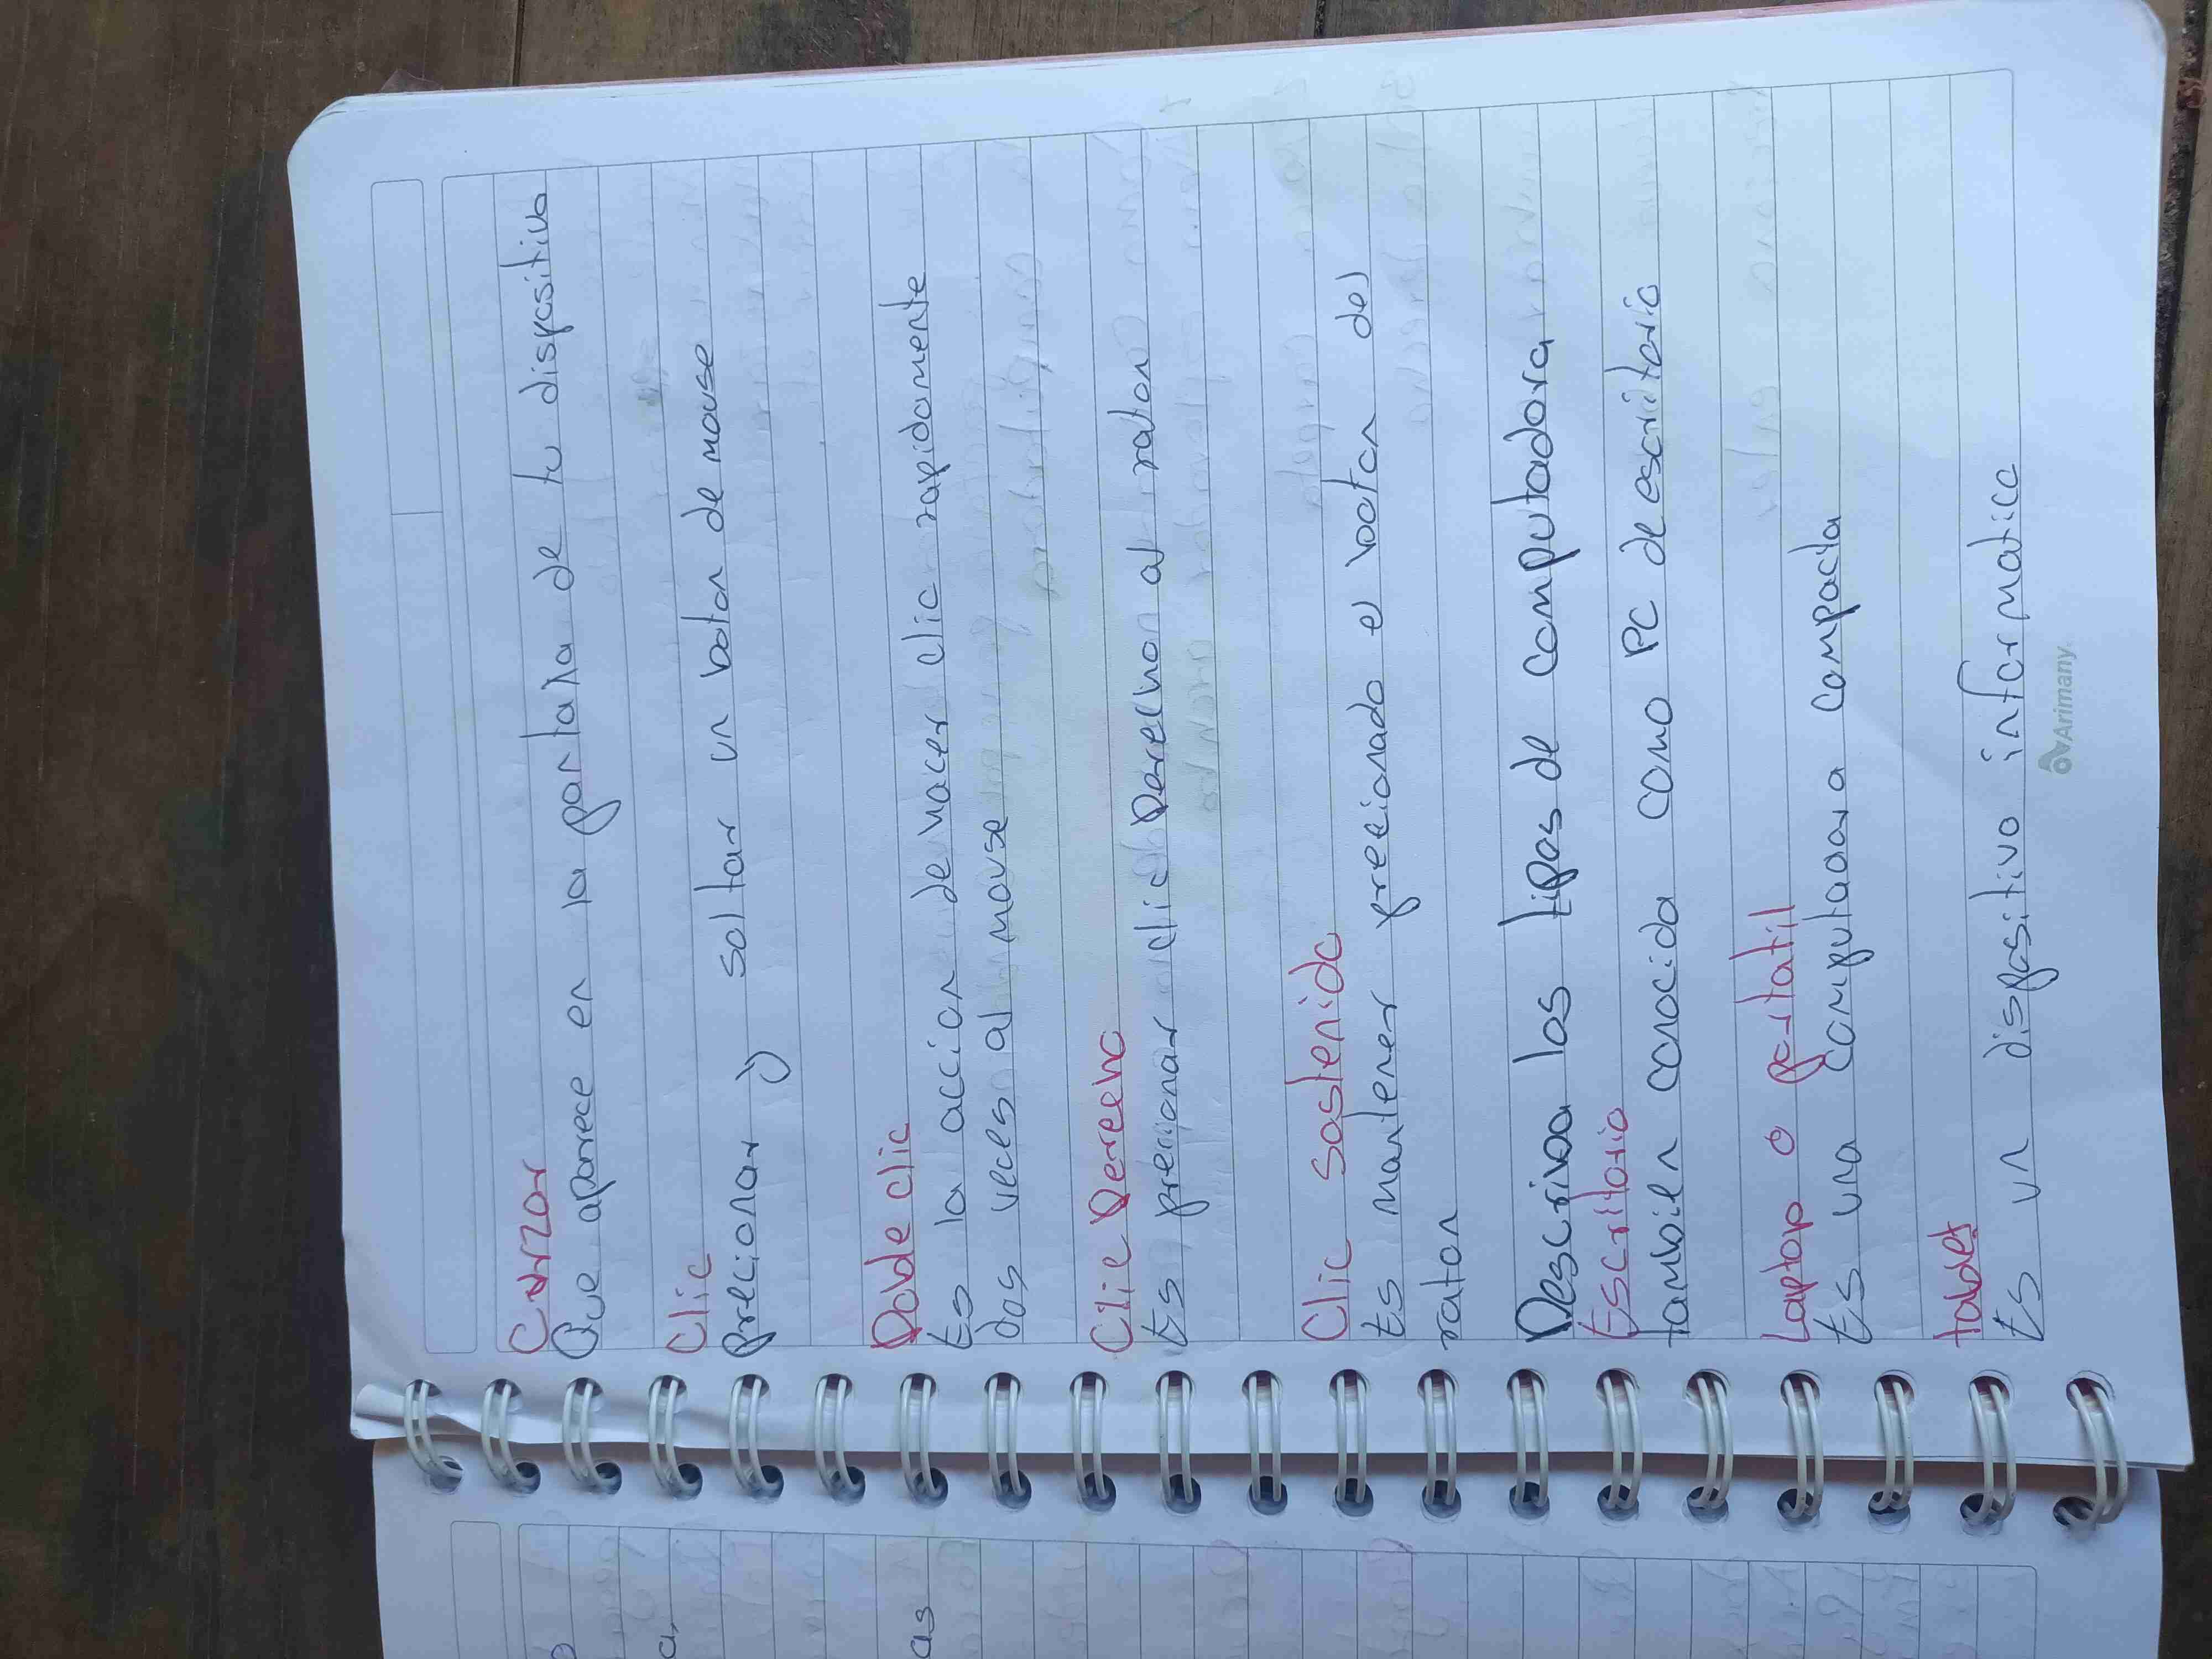 Curzor
Que aparece en la pantalla de tu dispositivo
Clic
precionar y soltar un boton de mouse
Doble clic
Es la accion de hacer clic rapidamente
dos veces al mouse
Clic Derecho
Es precionar clic Derecho al raton
Clic sostenido
Es mantener precionado el boton del
raton
Describa los tipos de computadora
Escritorio
tambien conocida como PC de escritorio
Laptop o portatil
Es una computadora compacta
tablet
Es un dispositivo informatico
Arimany
a,
as